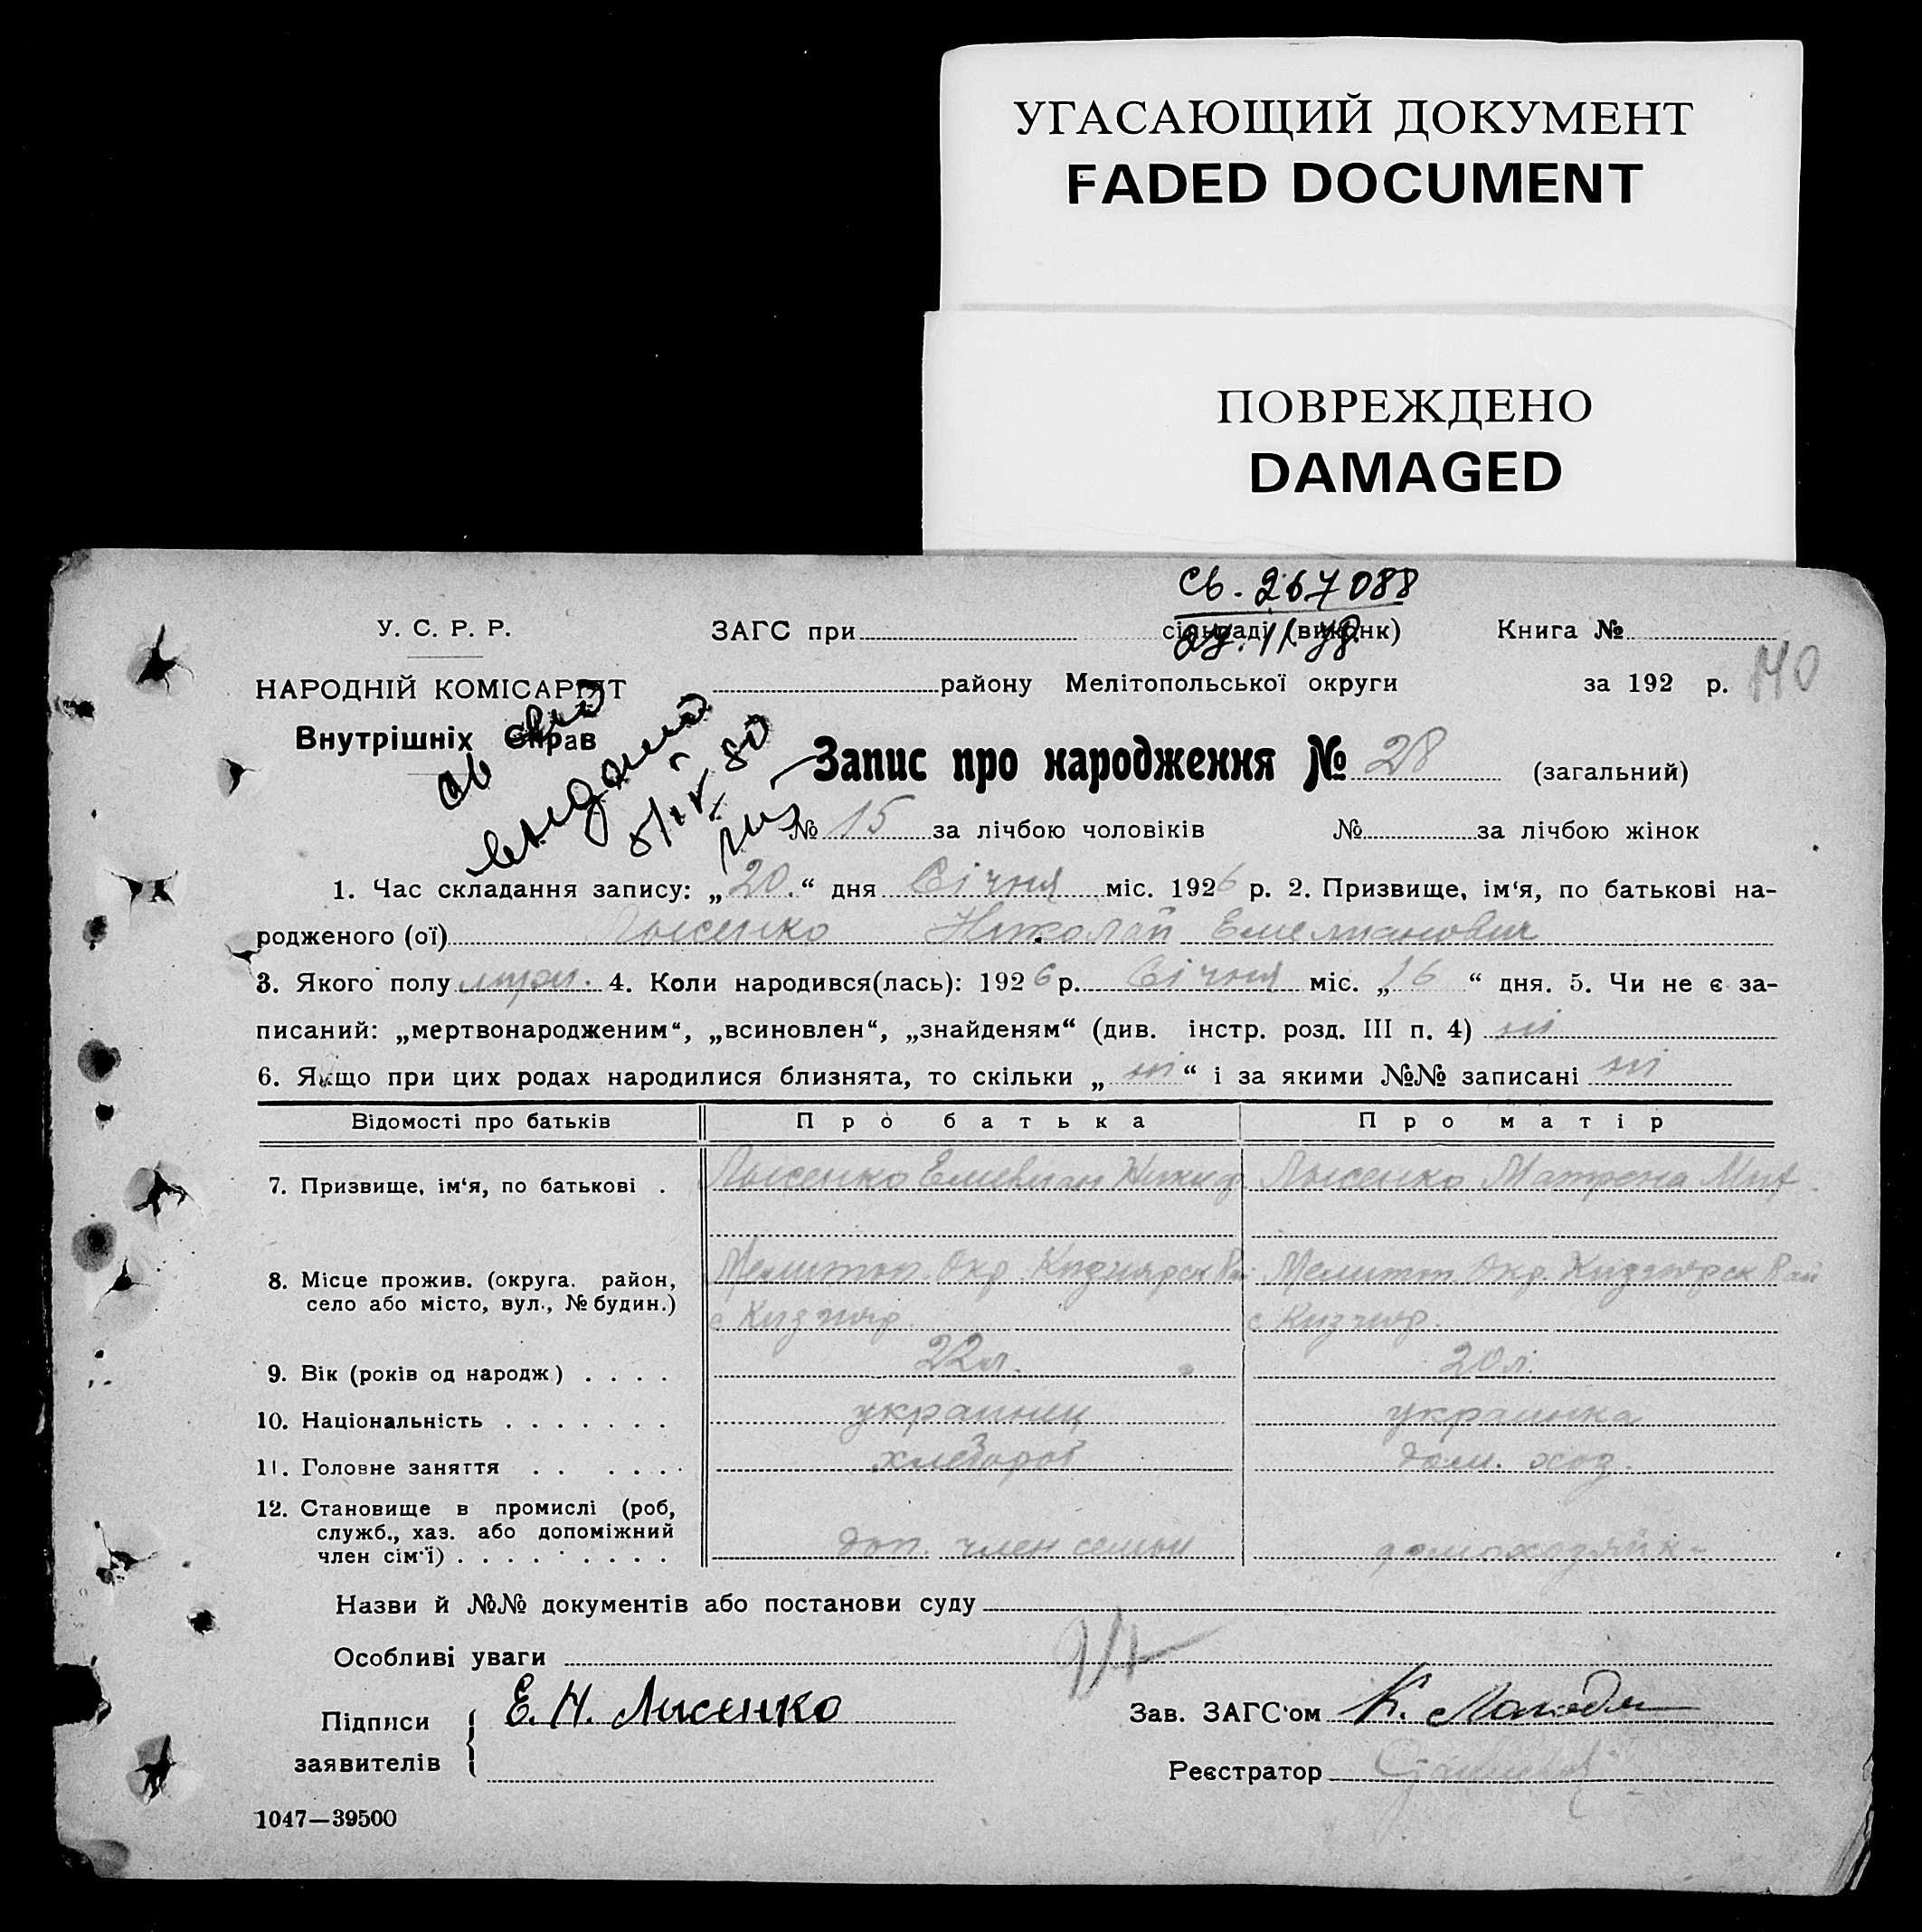 УГАСАЮЩИЙ ДОКУМЕНТ
FADED DOCUMENT
ПОВРЕЖДЕНО
DAMAGED
Св. 267088
У. С. Р. Р.
ЗАГС при сільраді (виконк) Книга №
НАРОДНІЙ КОМІСАРІЯТ
району Мелітопольської округи за 192 р. 140
Внутрішніх Справ
Запис про народження № 28 (загальний)
№ 15 за лічбою чоловіків № за лічбою жінок
1. Час складання запису: „20.“ дня Січня міс. 1926 р. 2. Призвище, ім‘я, по батькові на-
родженого (ої) Лысенко Николай Емельянович
3. Якого полу муж. 4. Коли народився(лась): 1926 р. Січня міс. „16“ дня. 5. Чи не є за-
писаний: „мертвонародженим“, „всиновлен“, „знайденям“ (див. інстр. розд. III п. 4) ні
6. Якщо при цих родах народилися близнята, то скільки „ні“ і за якими №№ записані ні
Відомості про батьків Про батька Про матір
7. Призвище, ім‘я, по батькові . Лысенко Емельян Никиф Лысенко Матрена Мит.
8. Місце прожив. (округа. район, Мелитоп. Окр. Кизиярск Рай Мелитоп. Окр. Кизиярск Рай
село або місто, вул., № будин.) с Кизияр. с Кизияр.
9. Вік (років од народж) . . . . 22 л. 20 л.
10. Національність . . . . . . . украинец украинка
11. Головне заняття . . . . . . хлебороб дом. хоз.
12. Становище в промислі (роб,
служб., хаз. або допоміжний
член сім‘ї) . . . . . . . . . доп. член семьи
Назви й №№ документів або постанови суду
Особливі уваги
Підписи Е. Н. Лисенко Зав. ЗАГС‘ом К.
заявителів Реєстратор
1047—39500